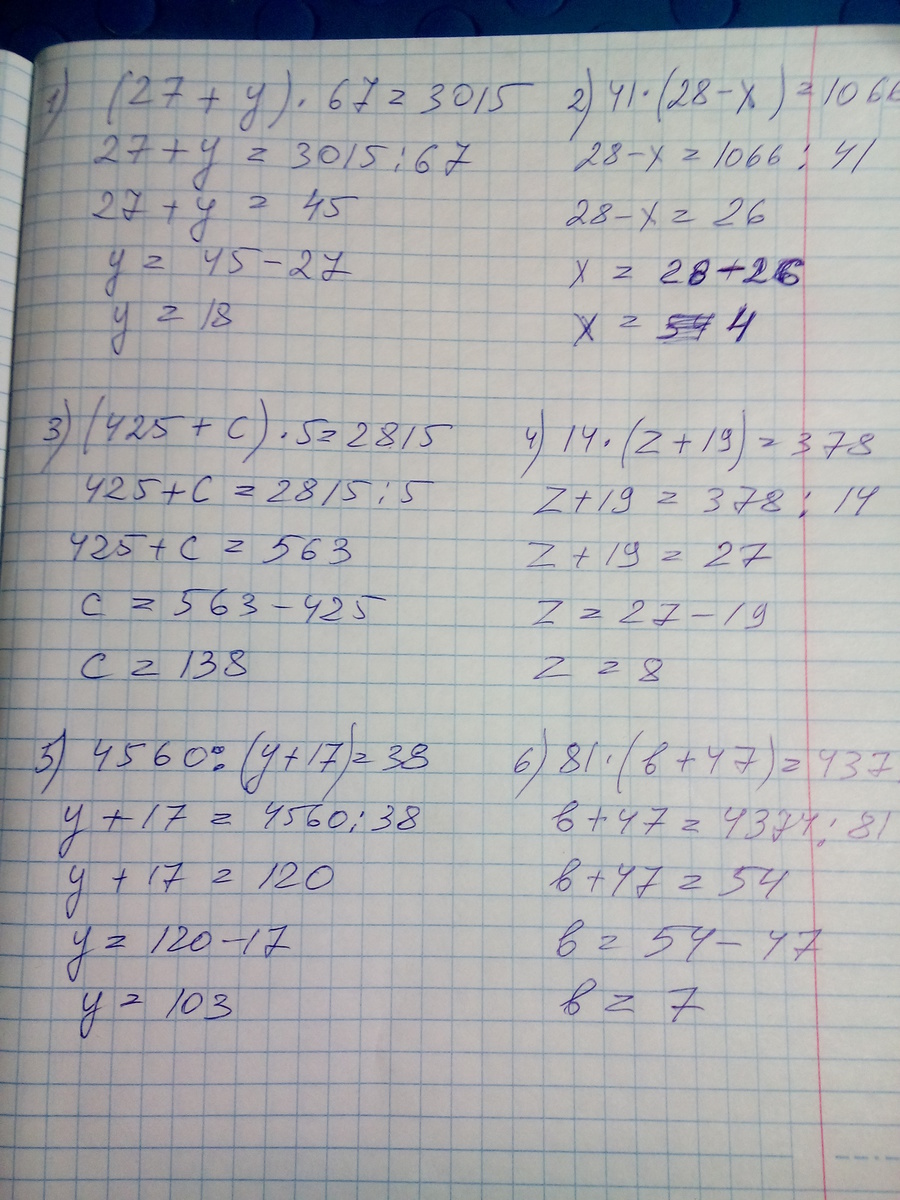 1) (27 + y) · 67 = 3015
27 + y = 3015 : 67
27 + y = 45
y = 45 - 27
y = 18
2) 41 · (28 - x) = 1066
28 - x = 1066 : 41
28 - x = 26
x = 28 + 26
x = 4
3) (425 + c) · 5 = 2815
425 + c = 2815 : 5
425 + c = 563
c = 563 - 425
c = 138
4) 14 · (z + 19) = 378
z + 19 = 378 : 14
z + 19 = 27
z = 27 - 19
z = 8
5) 4560 : (y + 17) = 38
y + 17 = 4560 : 38
y + 17 = 120
y = 120 - 17
y = 103
6) 81 · (в + 47) = 437
в + 47 = 4374 : 81
в + 47 = 54
в = 54 - 47
в = 7